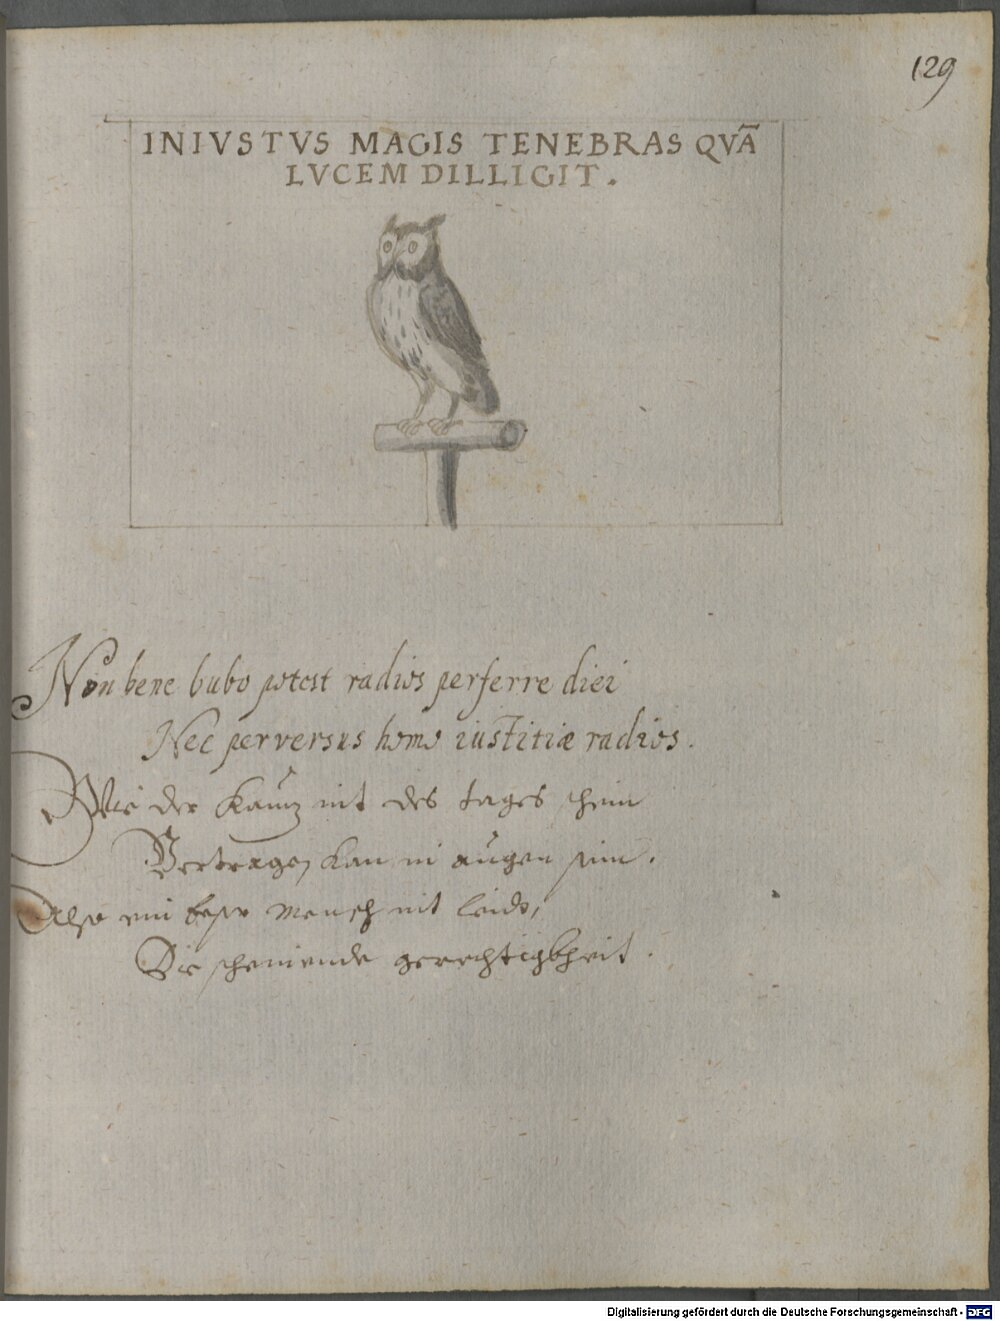 129
INIVSTVS MAGIS TENEBRAS QVÃ
LVCEM DILLIGIT.
Non bene bubo potest radios perferre diei
Nec perversus homo iustitiæ radios.
Wie der Kauz nit des tages schein
Vertragen kan in augen sein.
Also ein böser mensch nit leidt,
Die scheinende gerechtigkheit.
Digitalisierung gefördert durch die Deutsche Forschungsgemeinschaft - DFG